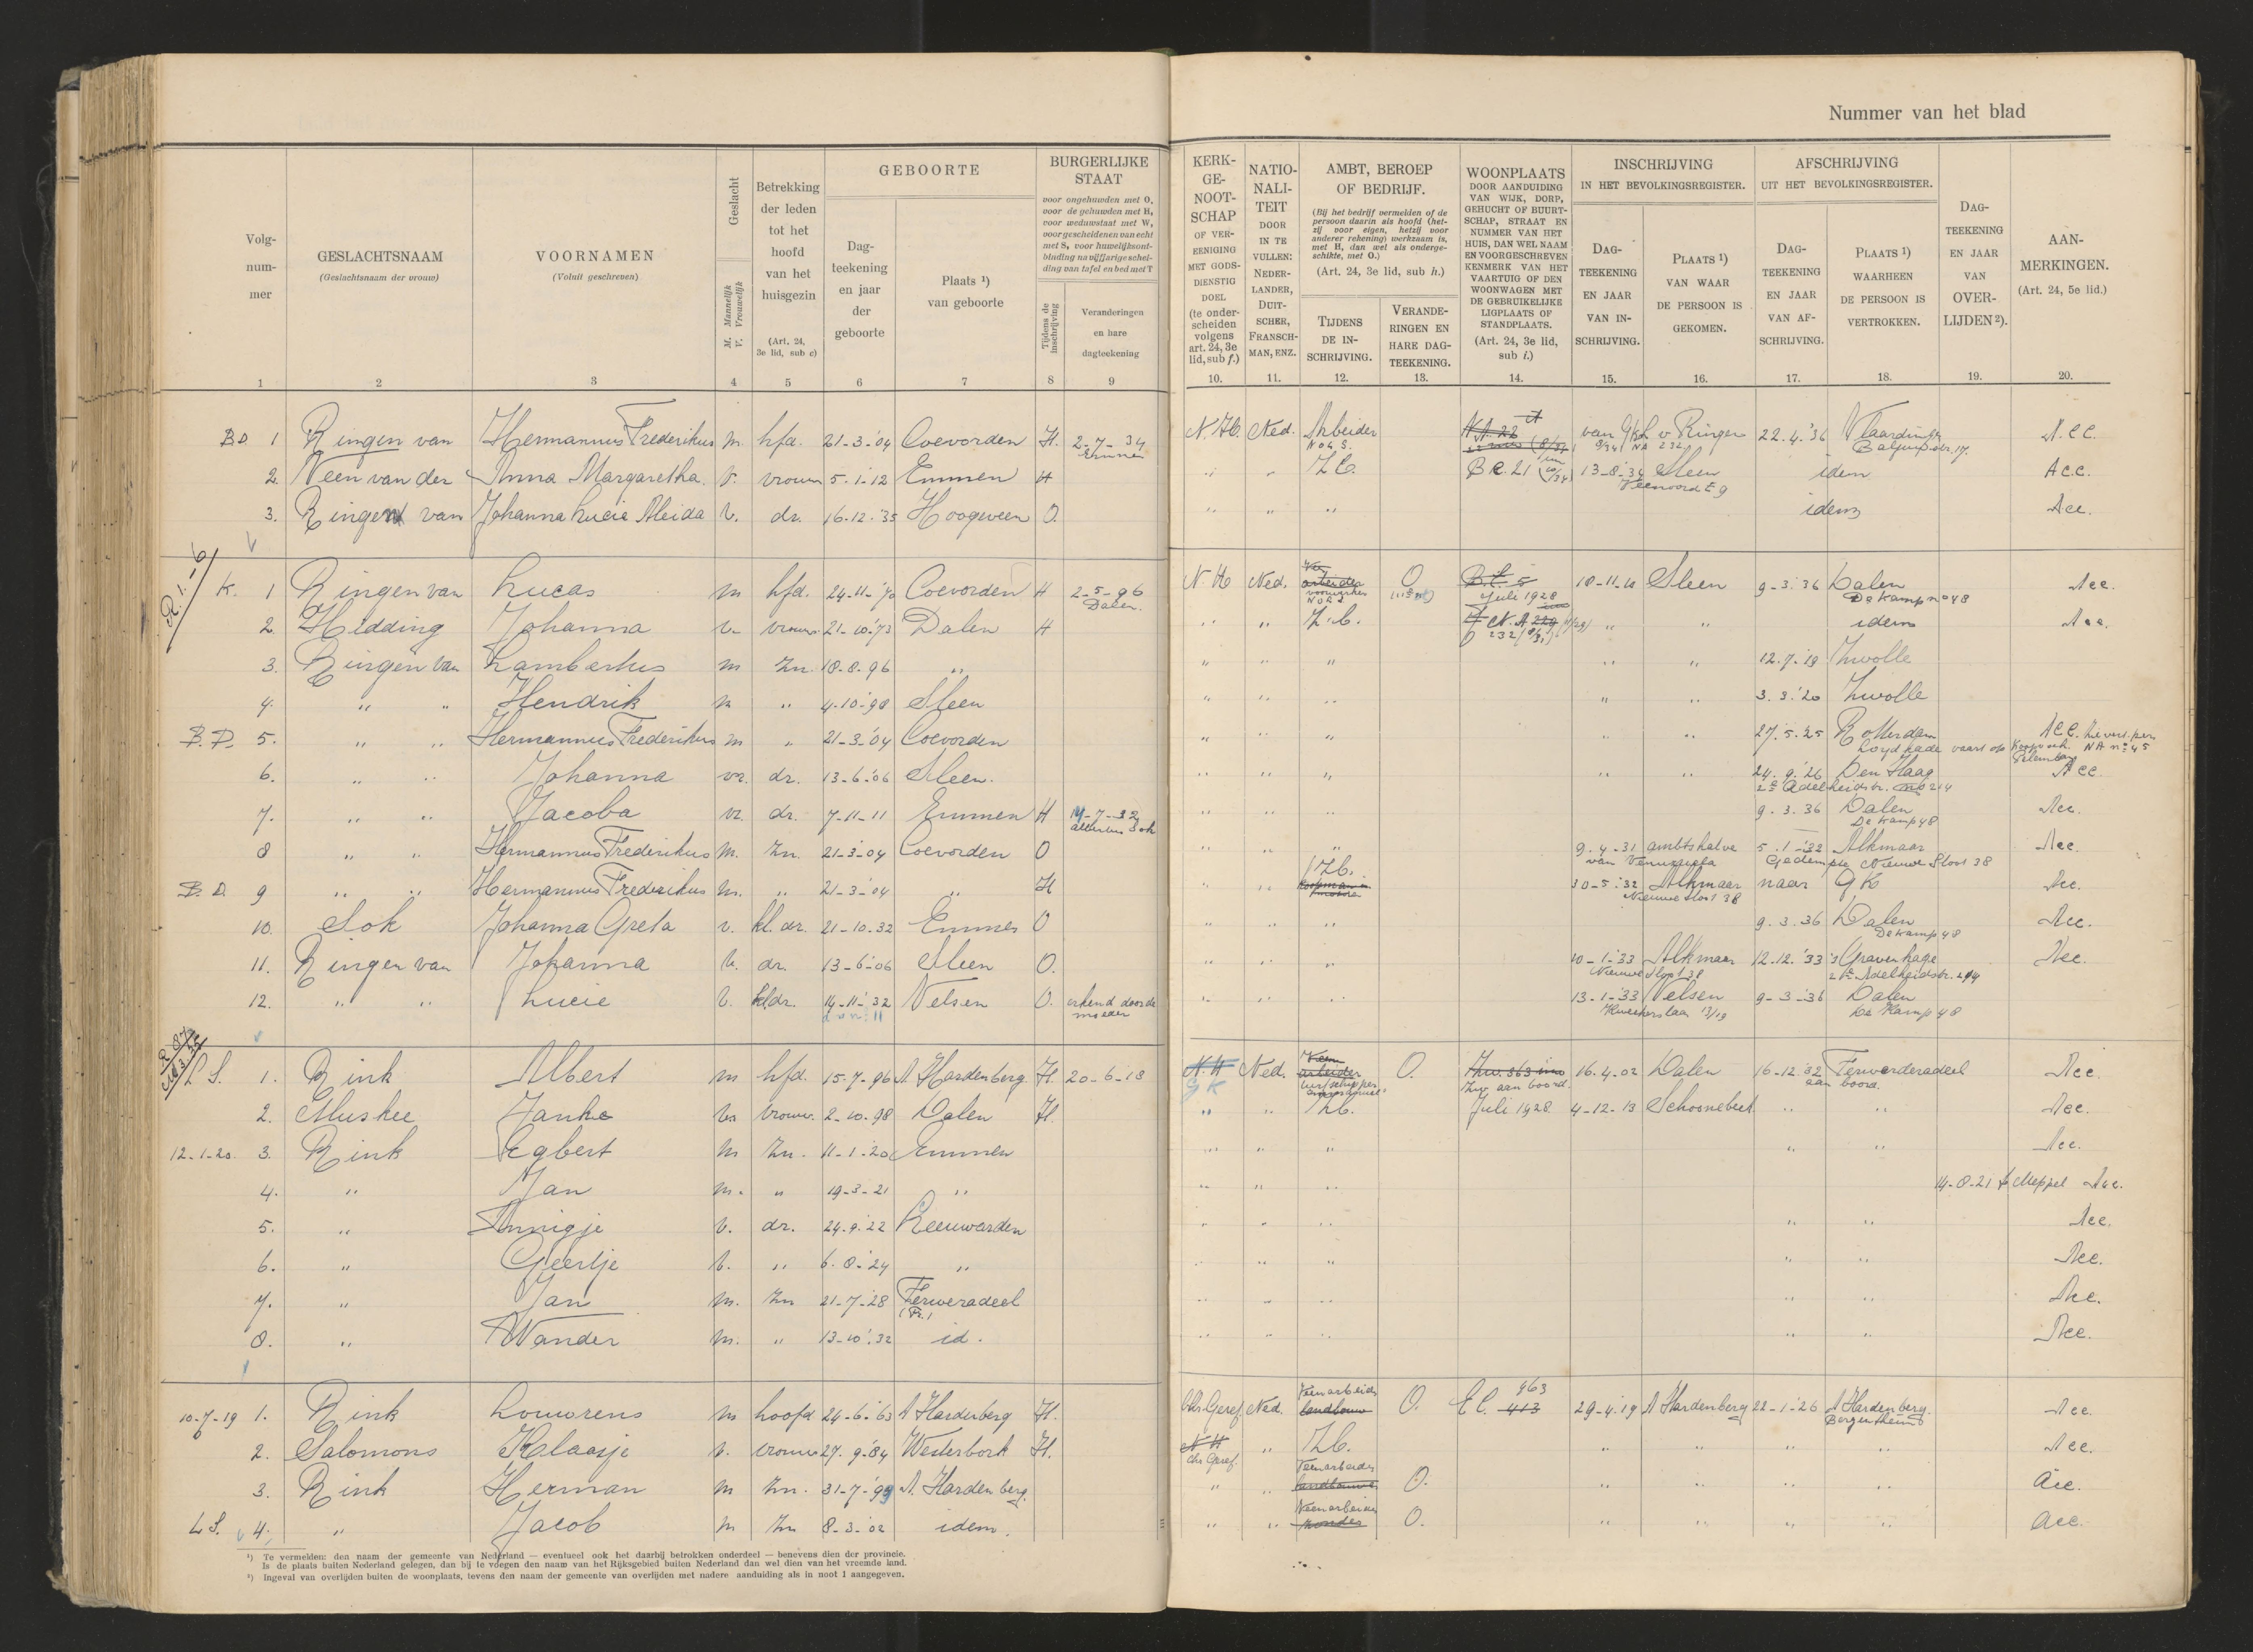 Nummer van het blad
Volg-
num-
mer
GESLACHTSNAAM
(Geslachtsnaam der vrouw)
VOORNAMEN
(Voluit geschreven)
Geslacht
M. Mannelijk
V. Vrouwelijk
Betrekking
der leden
tot het
hoofd
van het
huisgezin
(Art. 24,
3e lid, sub c)
GEBOORTE
Dag-
teekening
en jaar
der
geboorte
Plaats ¹)
van geboorte
BURGERLIJKE
STAAT
voor ongehuwden met O,
voor de gehuwden met H,
voor weduwstaat met W,
voor gescheidenen van echt
met S, voor huwelijksont-
binding na vijfjarige schei-
ding van tafel en bed met T
Tijdens de
inschrijving
Veranderingen
en hare
dagteekening
KERK-
GE-
NOOT-
SCHAP
OF VER-
EENIGING
MET GODS-
DIENSTIG
DOEL
(te onder-
scheiden
volgens
art. 24, 3e
lid, sub f.)
NATIO-
NALI-
TEIT
DOOR
IN TE
VULLEN:
NEDER-
LANDER,
DUIT-
SCHER,
FRANSCH-
MAN, ENZ.
AMBT, BEROEP
OF BEDRIJF.
(Bij het bedrijf vermelden of de
persoon daarin als hoofd (het-
zij voor eigen, hetzij voor
anderer rekening) werkzaam is,
met H, dan wel als onderge-
schikte, met O.)
(Art. 24, 3e lid, sub h.)
TIJDENS
DE IN-
SCHRIJVING.
VERANDE-
RINGEN EN
HARE DAG-
TEEKENING.
WOONPLAATS
DOOR AANDUIDING
VAN WIJK, DORP,
GEHUCHT OF BUURT-
SCHAP, STRAAT EN
NUMMER VAN HET
HUIS, DAN WEL NAAM
EN VOORGESCHREVEN
KENMERK VAN HET
VAARTUIG OF DEN
WOONWAGEN MET
DE GEBRUIKELIJKE
LIGPLAATS OF
STANDPLAATS.
(Art. 24, 3e lid,
sub i.)
INSCHRIJVING
IN HET BEVOLKINGSREGISTER.
DAG-
TEEKENING
EN JAAR
VAN IN-
SCHRIJVING.
PLAATS ¹)
VAN WAAR
DE PERSOON IS
GEKOMEN.
AFSCHRIJVING
UIT HET BEVOLKINGSREGISTER.
DAG-
TEEKENING
EN JAAR
VAN AF-
SCHRIJVING.
PLAATS ¹)
WAARHEEN
DE PERSOON IS
VERTROKKEN.
DAG-
TEEKENING
EN JAAR
VAN
OVER-
LIJDEN ²).
AAN-
MERKINGEN.
(Art. 24, 5e lid.)
1 2 3 4 5 6 7 8 9 10. 11. 12. 13. 14. 15. 16. 17. 18. 19. 20.
1 Ringen van Hermannus Frederikus m. hfd. 21-3-'04 Coevorden H. 2-7-34 N.H. Ned. Arbeider 22.4.'36 Acc.
Emmen
2. Veen van der Anna Margaretha. v. vrouw 5-1-12 Emmen H Z.b. 13-8-'34 Sleen idem Acc.
3. Ringen van Johanna Lucie Aleida v. dr. 16-12-'35 Hoogeveen O. idem Acc.
K. 1 Ringen van Lucas m hfd. 24-11-'70 Coevorden H 2-5-96 N.H Ned. O 18-11-10 Sleen 9-3-'36 Dalen Acc.
Dalen. Juli 1928 De Kamp no 48
2. Hidding Johanna v. vrouw 21-10-'73 Dalen H " " Z.b. " " idem Acc.
3. Ringen van Lambertus m zn. 18-8-96 " " " " " " 12.7-'19 Zwolle
4. " " Hendrik m " 4-10-98 Sleen " " " " " 3.3.'20 Zwolle
B.D. 5. " " Hermannus Frederikus m " 21-3-'04 Coevorden " " " " " 27.5.25 Rotterdam Acc.
6. " " Johanna vr. dr. 13-6-'06 Sleen. " " " " " 24.9.'26 Den Haag Acc.
7. " " Jacoba vr. dr. 7-11-11 Emmen H " " " 9.3.36 Dalen Acc.
De Kamp 48
8 " " Hermannus Frederikus m. zn. 21-3-04 Coevorden O " " " 9-4-31 ambtshalve 5-1-'32 Alkmaar Acc.
B.D. 9 " " Hermannus Frederikus m. " 21-3-'04 " H " " Z.b. 30-5-'32 Alkmaar naar GK Acc.
Nieuwe Sloot 38
10. Sok Johanna Greta v. kl. dr. 21-10-32 Emmen O " " " 9.3.36 Dalen Acc.
De Kamp 48
11. Ringen van Johanna v. dr. 13-6-'06 Sleen O. " " " 10-1-'33 Alkmaar 12.12.'33 's Gravenhage Acc.
12. " " Lucie v. kldr. 14-11-'32 Velsen O. erkend door de " " " 13-1-'33 Velsen 9-3-'36 Dalen
moeder De Kamp 48
L.S. 1. Rink Albert m hfd. 15-7-96 A Hardenberg H. 20-6-18 N.H Ned. O. 16.4.02 Dalen 16-12-'32 Ferwerderadeel Acc.
GK aan boord.
2. Muskee Janke v. vrouw. 2-10-98 Dalen H. " " Z.b. Juli 1928 4-12-13 Schoonebeek " " Acc.
12-1-20. 3. Rink Egbert m zn. 11-1-20 Emmen " " " " " Acc.
4. " Jan m. " 19-3-21 " " " " 14-8-21 Meppel Acc.
5. " Annigje v. dr. 24.9.'22 Leeuwarden " " " " " Acc.
6. " Geertje v. " 6-8-24 " " " " " " Acc.
7. " Jan m. zn 21-7-'28 Ferweradeel " " " " " Acc.
(Fr.)
8. " Wander m. " 13-10-'32 id. " " " " " Acc.
10-7-19 1. Rink Louwrens m hoofd 24-6-'63 A Hardenberg H. Chr. Geref. Ned. Veenarbeider landbouw O. E C. 413 963 29-4-19 A Hardenberg 22-1-'26 A Hardenberg. Acc.
Bergentheim
2. Salomons Klaasje v. vrouw 27.9.'84 Westerbork H. N H " Z.b. " " " " Acc.
Chr. Geref.
3. Rink Herman m zn. 31-7-'99 A. Hardenberg. " " Veenarbeider landbouw O. " " " " Acc.
L.S. 4. " Jacob m zn 8-3-'02 idem. " " Veenarbeider zonder O. " " " " Acc.
¹) Te vermelden: den naam der gemeente van Nederland — eventueel ook het daarbij betrokken onderdeel — benevens dien der provincie.
Is de plaats buiten Nederland gelegen, dan bij te voegen den naam van het Rijksgebied buiten Nederland dan wel dien van het vreemde land.
²) Ingeval van overlijden buiten de woonplaats, tevens den naam der gemeente van overlijden met nadere aanduiding als in noot 1 aangegeven.